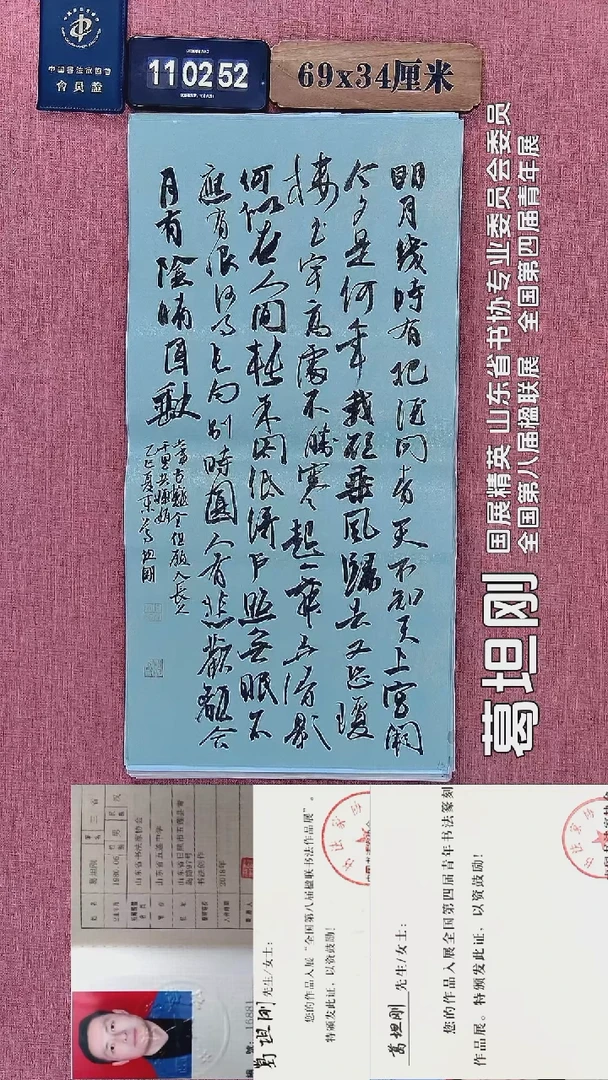 中国书法家协会
會員證
11 02 52
69x34厘米
明月幾時有把酒问青天不知天上宫阙
今夕是何年我欲乘風歸去又恐瓊
樓玉宇高處不勝寒起舞弄清影
何似在人间转朱阁低绮户照無眠不
應有恨何事长向别時圓人有悲歡離合
月有陰晴圆缺
此事古難全但願人長久
千里共嬋娟
乙巳夏末葛坦剛
国展精英 山东省书协专业委员会委员
全国第八届楹联展 全国第四届青年展
葛坦刚
山东省书法家协会
2018年
16881
葛坦刚 先生/女士：
您的作品入展“全国第八届楹联书法作品展”。
特颁发此证，以资鼓励！
葛坦刚 先生/女士：
您的作品入展全国第四届青年书法篆刻
作品展。特颁发此证，以资鼓励！